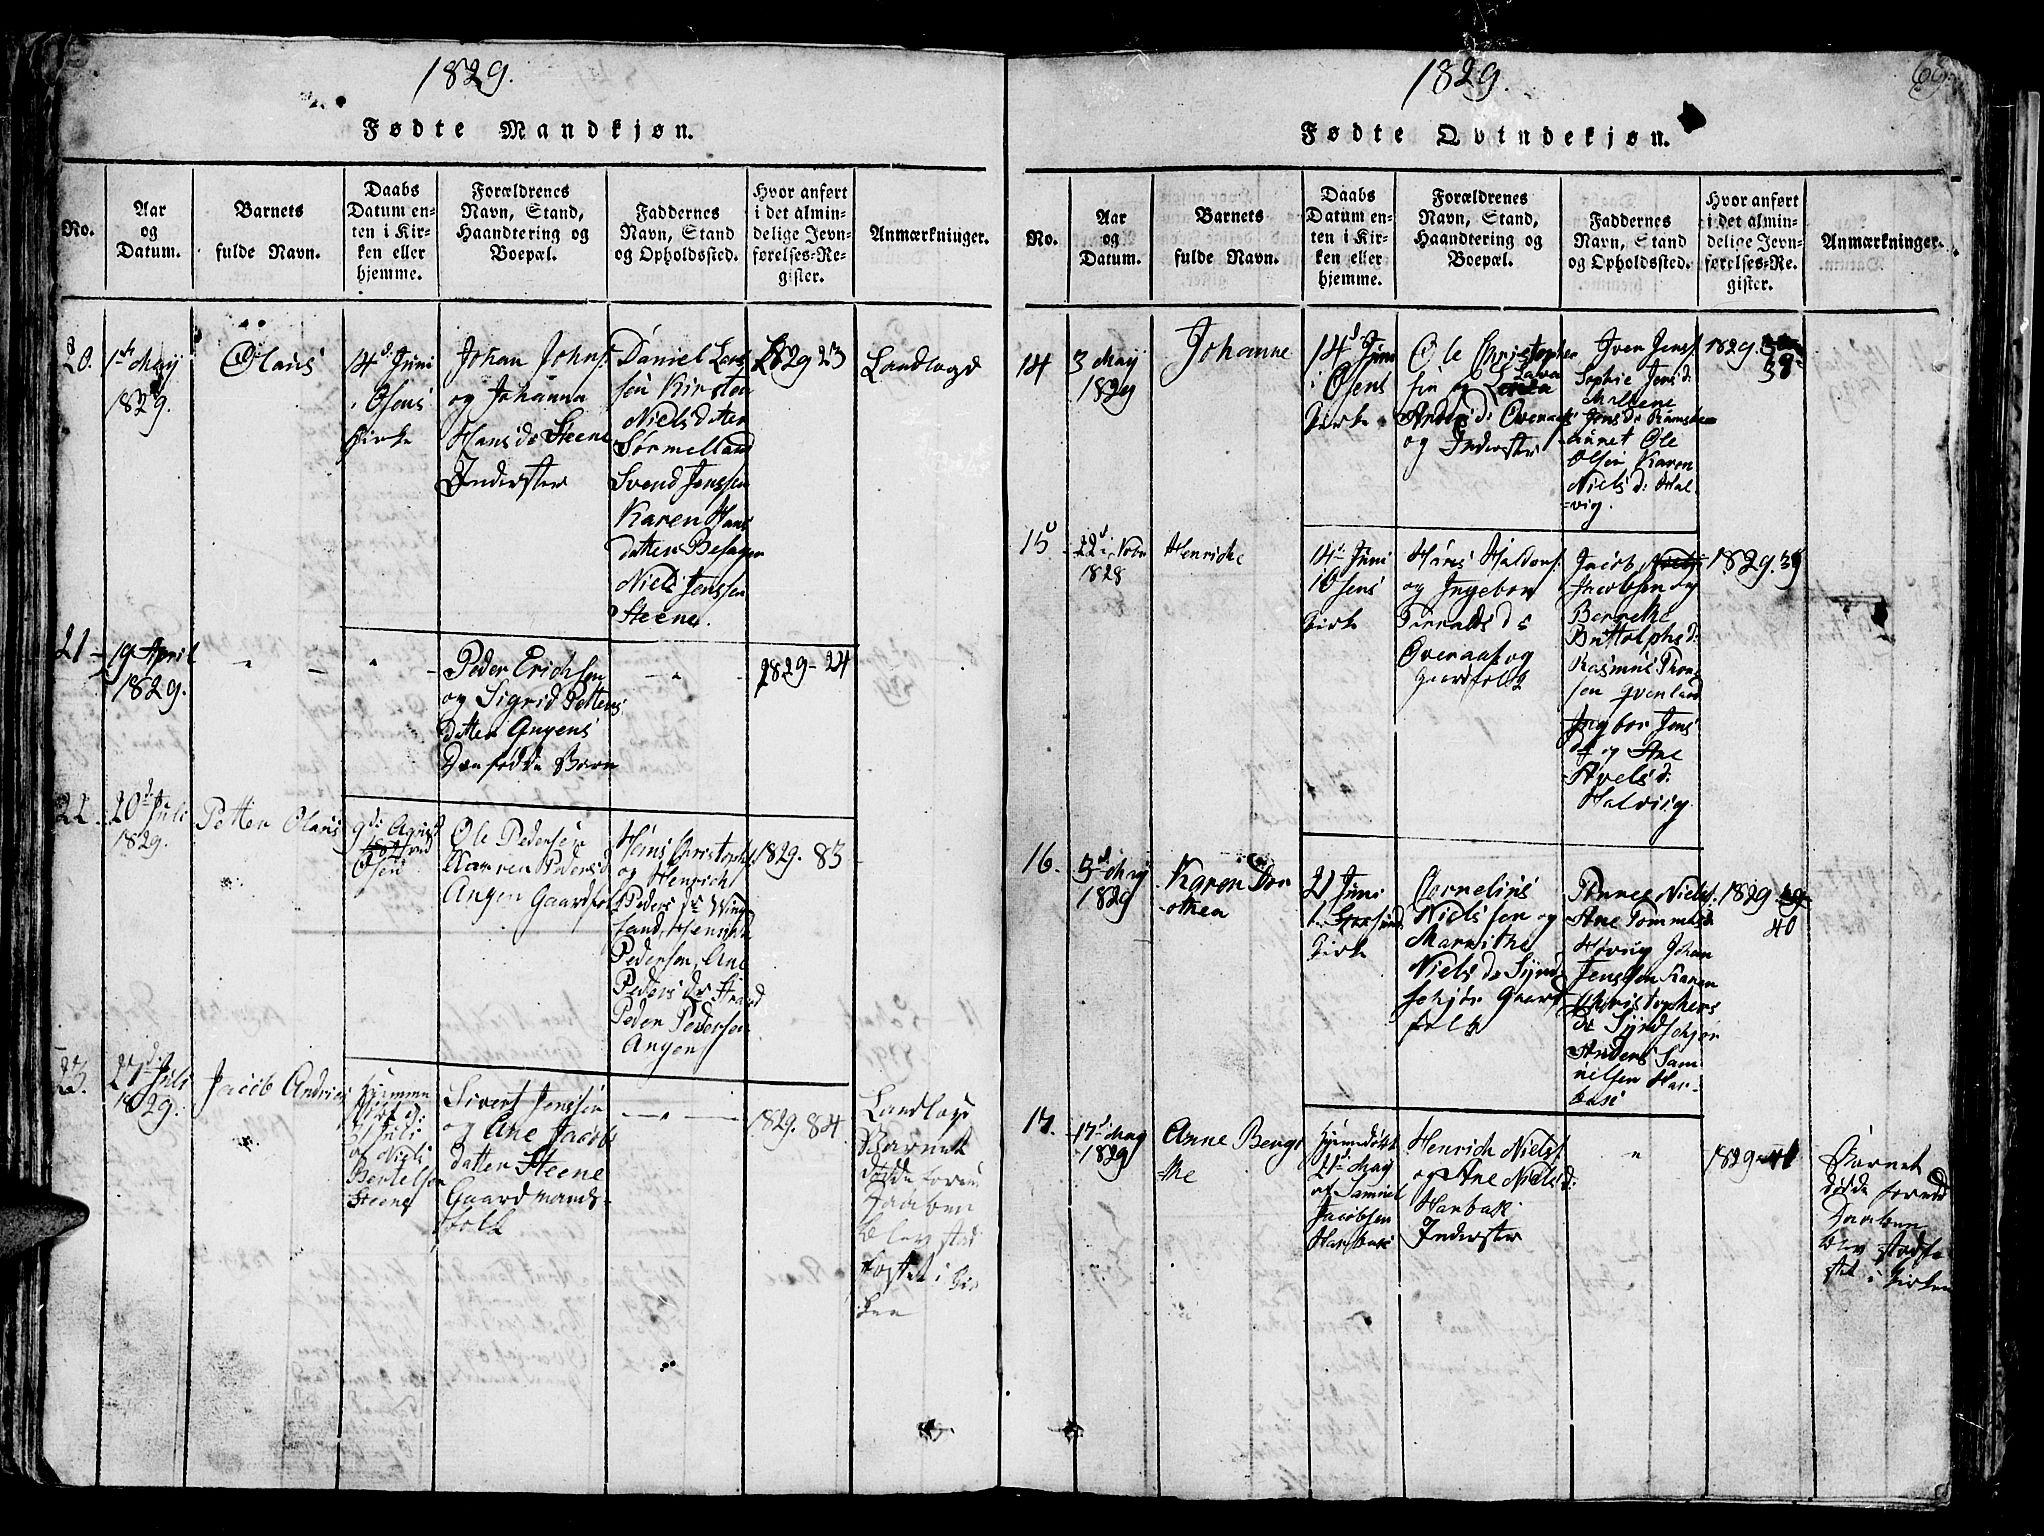 1829.
Fødte Mandkjøn.
No.
Aar
og
Datum.
Barnets
fulde Navn.
Daabs
Datum en-
ten i Kir-
ken eller
hjemme.
Forældrenes
Navn, Stand,
Haandtering og
Boepæl.
Faddernes
Navn, Stand
og Opholdssted.
Hvor anført
i det almin-
delige Jevn-
førelses-Re-
gister.
Anmærkninger.
20.
1ste May
1829.
Olaus
14d. Juni
i Osens
Kirke
Johan Johns.
og Johanna
Hans ds Steene
Inderster
Daniel Lars
sen Kirsten
Niels datter
Sørmelland
Svend Jenssen
Karen Hans
datter Besager
Niels Jenssen
Steene.
1829 23
Landlagd
21
19 April
1829.
Peder Erichsen
og Sigrid Petters
datter Angens
Dødfødde Barn
1829 - 24
22.
20d Juli
1829.
Petter Olaus
9d: August
Osen
Ole Pedersen
Karen Peders d
Angen Gaardfolk
Hans Christophs.
og Henrich
Peders ds Wing
sand, Henrich
Pedersen, Ane
Peders ds Strand
Peder Pedersen
Angen
1829. 83
23.
27d Juli
1829.
Jacob Andrias
hjemme
31 Juli
af Niels
Bertelsen
Steene
Sivert Jenssen
og Ane Jacobs
datter Steene
Gaardmands-
folk
1829. 84
Landlagt
Barnet
døde forend
Daaben
blev stad
fæstet i Kir
ken
1829.
69.
Fødte Qvindekjøn.
No.
Aar
og
Datum.
Barnets
fulde Navn.
Daabs
Datum en-
ten i Kir-
ken eller
hjemme.
Forældrenes
Navn, Stand,
Haandtering og
Boepæl.
Faddernes
Navn, Stand
og Opholdssted.
Hvor anført
i det almin-
delige Jevn-
førelses-Re-
gister.
Anmærkninger.
14
3 May
1829
Johanne
14d Juni
i Osens
Kirke
Ole Christopher
sen og Lava
Anders d: Overaas
og Inderster
Iver Jens.
Sophie Jens d.
Millene
Jens ds Ramsøe
auret Ole
Olsen Karen
Niels d: Hal
-vig.
1829.
38
15
22d Nobr
1828
Henricke
14d Juni
i Osens
Kirke
Hans Haldors.
og Ingebor
Tarrals ds
Overaas og
Gaardfolk
Jacob
Jacobsen og
Berethe
Bottolphs d:
Rasmus Thom
sen Qvenland
Ingbor Jens
ds og Ane
Axels d:
Halvig.
1829. 39
16.
3d May
1829
Karen Dor
othea
21 Juni
i
Kirke
Cornelius
Nielssen og
Marrithe
Niels ds Synd
schjør Gaard
folk
Tønnes Niels.
Ane Tommes d.
Høvig Johan
Jenssen Karen
Christophers
ds Syndschjør
Anders Sam
uelsen Har
bak
1829
40
17.
17d May
1829
Anne Beng
the
hjemdøbt
21d May
af Samuel
Jacobsen
Harbak
Henrich Niels.
og Ane Niels d:
Harbak
Inderster
1829 41
Barnet
døde forend
Daaben
blev stadfæ
stet i Kirken